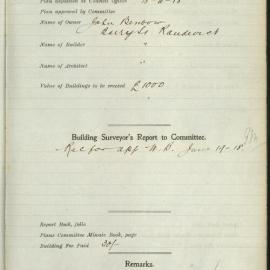 Plan deposited at Council Office
Plan approved by Committee
Name of Owner John Benbow
Surry St Randwick
Name of Builder "
Name of Architect "
Value of Buildings to be erected £1000
Building Surveyor's Report to Committee.
Rec for app W.B. June 19-18
Report Book, folio
Plans Committee Minute Book, page
Building Fee Paid 20/-
Remarks.